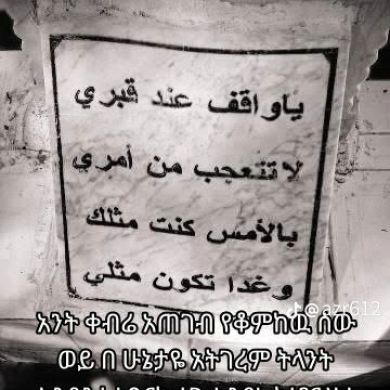 ياواقف عند قبري
لا تتعجب من أمري
بالأمس كنت مثلك
وغدا تكون مثلي
@azr612
አንት ቀብሬ አጠገብ የቆምከዉ ሰው
ወይ በ ሁኔታዬ አትገረም ትላንት